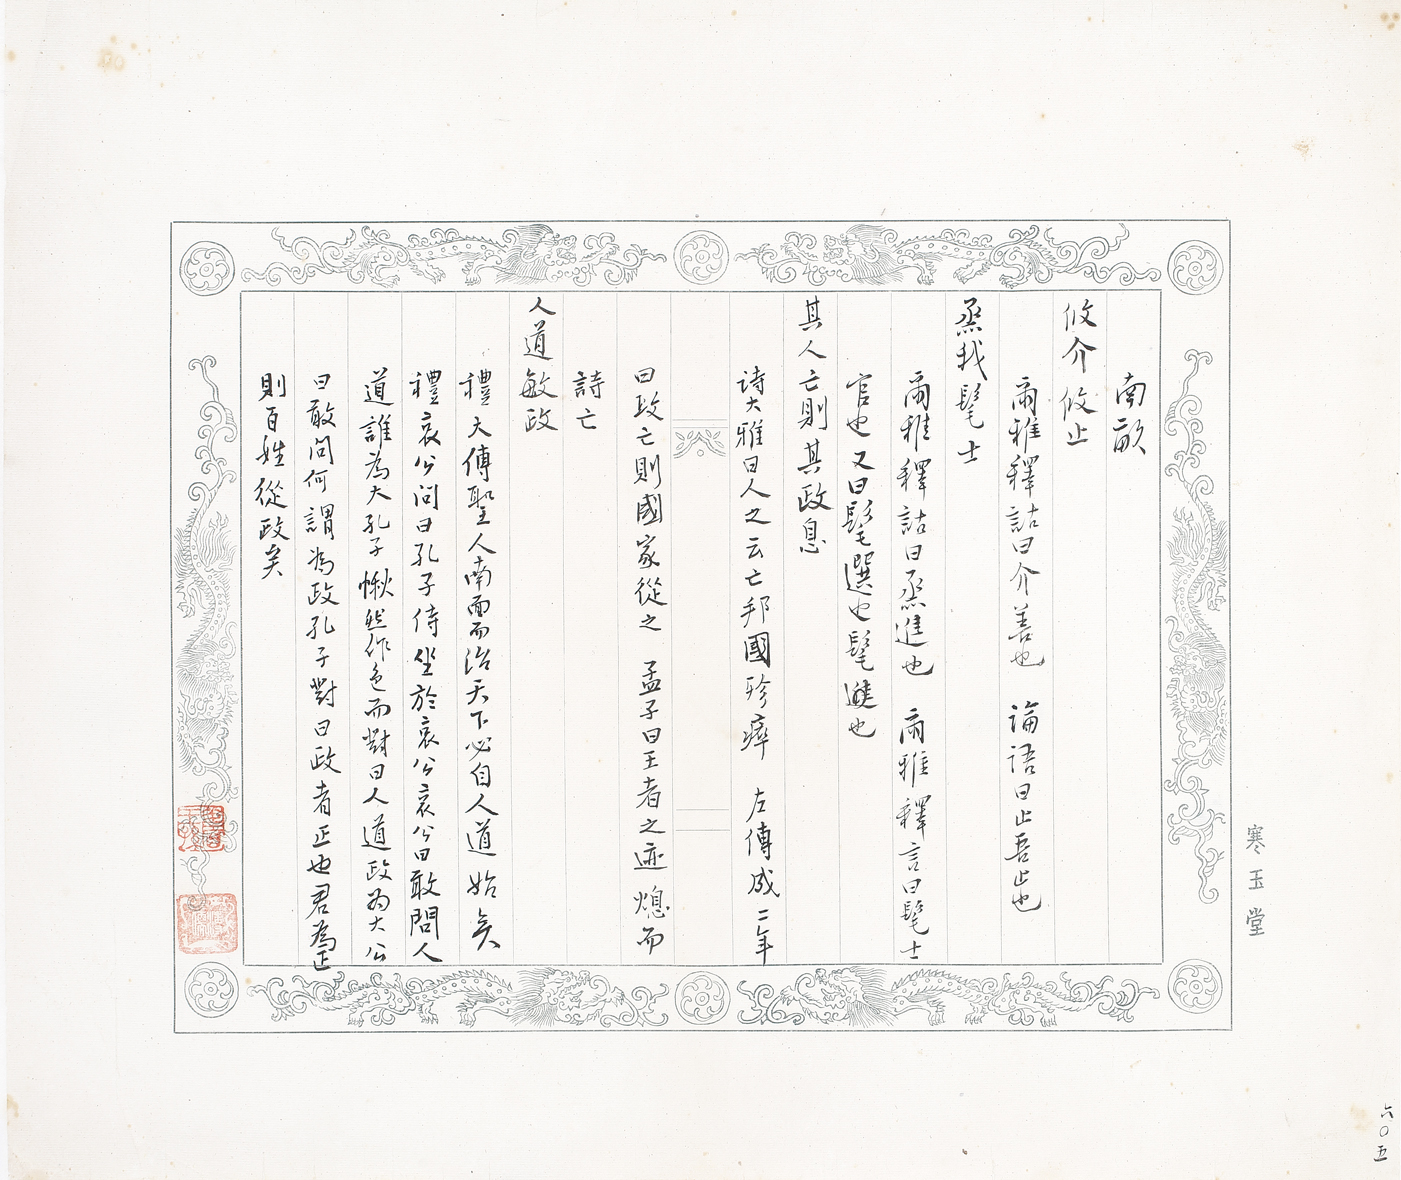 南畝
攸介攸止
爾雅釋詁曰介善也　論語曰止吾止也
烝我髦士
爾雅釋詁曰烝進也　爾雅釋言曰髦士
官也又曰髦選也髦選也
其人亡則其政息
詩大雅曰人之云亡邦國殄瘁　左傳成二年
曰政亡則國家從之　孟子曰王者之迹熄而
詩亡
人道敏政
禮大傳聖人南面而治天下必自人道始矣
禮哀公問曰孔子侍坐於哀公哀公曰敢問人
道誰為大孔子愀然作色而對曰人道政為大公
曰敢問何謂為政孔子對曰政者正也君為正
則百姓從政矣
寒玉堂
六〇五